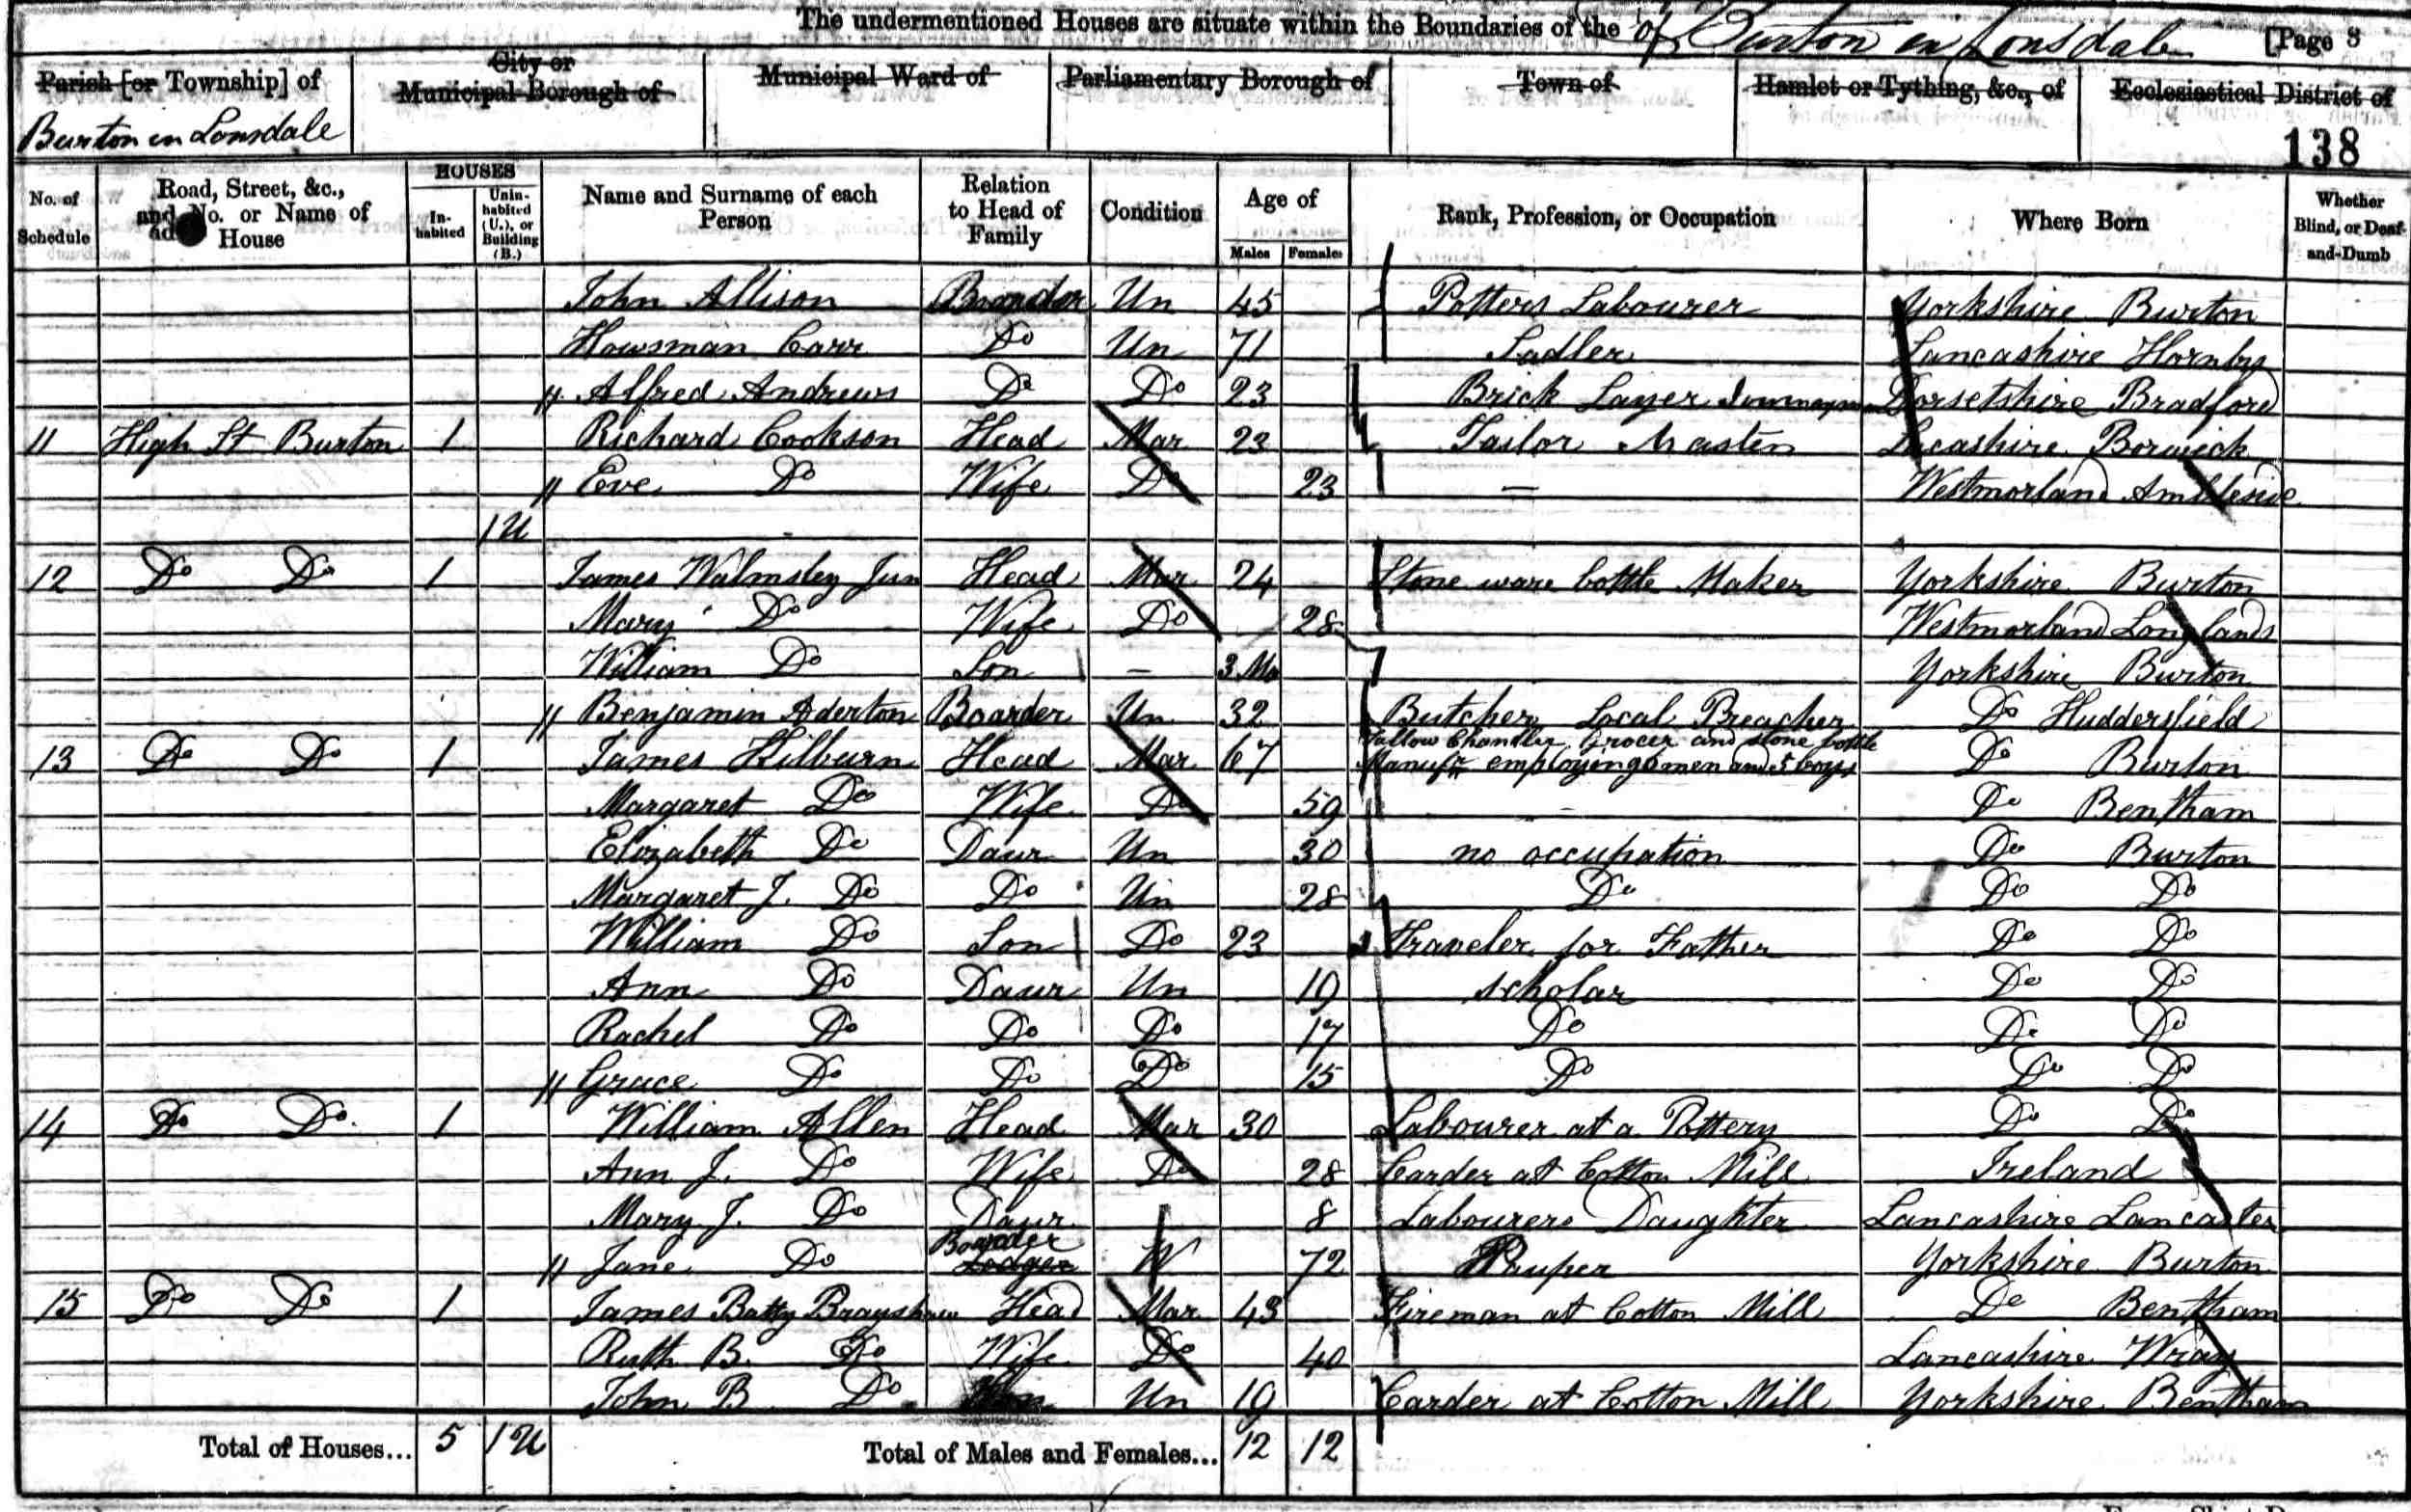 The undermentioned Houses are situate within the Boundaries of the of Burton in Lonsdale [Page 8
Parish [or Township] of
Burton in Lonsdale
City or Municipal Borough of
Municipal Ward of
Parliamentary Borough of
Town of
Hamlet or Tything, &c., of
Ecclesiastical District of
138
No. of Schedule
Road, Street, &c., and No. or Name of House
HOUSES
In-habited
Unin-habited (U.), or Building (B.)
Name and Surname of each Person
Relation to Head of Family
Condition
Age of
Males Females
Rank, Profession, or Occupation
Where Born
Whether Blind, or Deaf-and-Dumb
John Allison Boarder Un 45 Potters Labourer Yorkshire Burton
Howsman Carr Do Un 71 Sadler Lancashire Hornby
// Alfred Andrews Do Do 23 Brick Layer Journeyman Dorsetshire Bradford
11 High St Burton 1 Richard Cookson Head Mar 23 Tailor Master Lacashire Borwick
// Eve Do Wife Do 23 — Westmorland Ambleside
1 U
12 Do Do 1 James Walmsley Jun Head Mar 24 Stone ware bottle Maker Yorkshire Burton
Mary Do Wife Do 28 Westmorland Longlands
William Do Son — 3 Mo Yorkshire Burton
// Benjamin Aderton Boarder Un 32 Butcher Local Preacher Do Huddersfield
13 Do Do 1 James Kilburn Head Mar 67 Tallow Chandler, Grocer and stone bottle Manufr employing men and 5 boys Do Burton
Margaret Do Wife Do 59 — Do Bentham
Elizabeth Do Daur Un 30 no occupation Do Burton
Margaret J. Do Do Un 28 Do Do Do
William Do Son Do 23 Traveler for Father Do Do
Ann Do Daur Un 19 scholar Do Do
Rachel Do Do Do 17 Do Do Do
// Grace Do Do Do 15 Do Do Do
14 Do Do 1 William Allen Head Mar 30 Labourer at a Pottery Do Do
Ann J. Do Wife Do 28 Carder at Cotton Mill Ireland
Mary J. Do Daur 8 Labourers Daughter Lancashire Lancaster
// Jane Do Boarder Lodger W 72 Pauper Yorkshire Burton
15 Do Do 1 James Batty Brayshaw Head Mar 43 Fireman at Cotton Mill Do Bentham
Ruth B. Do Wife Do 40 Lancashire Wray
John B Do Son Un 19 Carder at Cotton Mill Yorkshire Bentham
Total of Houses... 5 1 U Total of Males and Females... 12 12